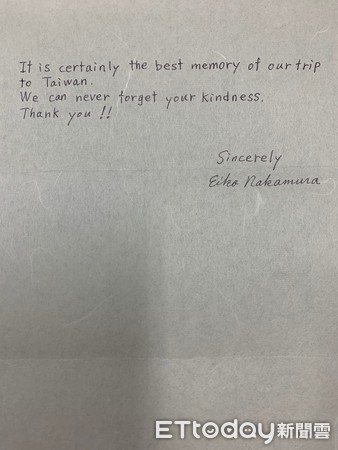 It is certainly the best memory of our trip
to Taiwan.
We can never forget your kindness.
Thank you !!
Sincerely
Eiko Nakamura
ETtoday新聞雲